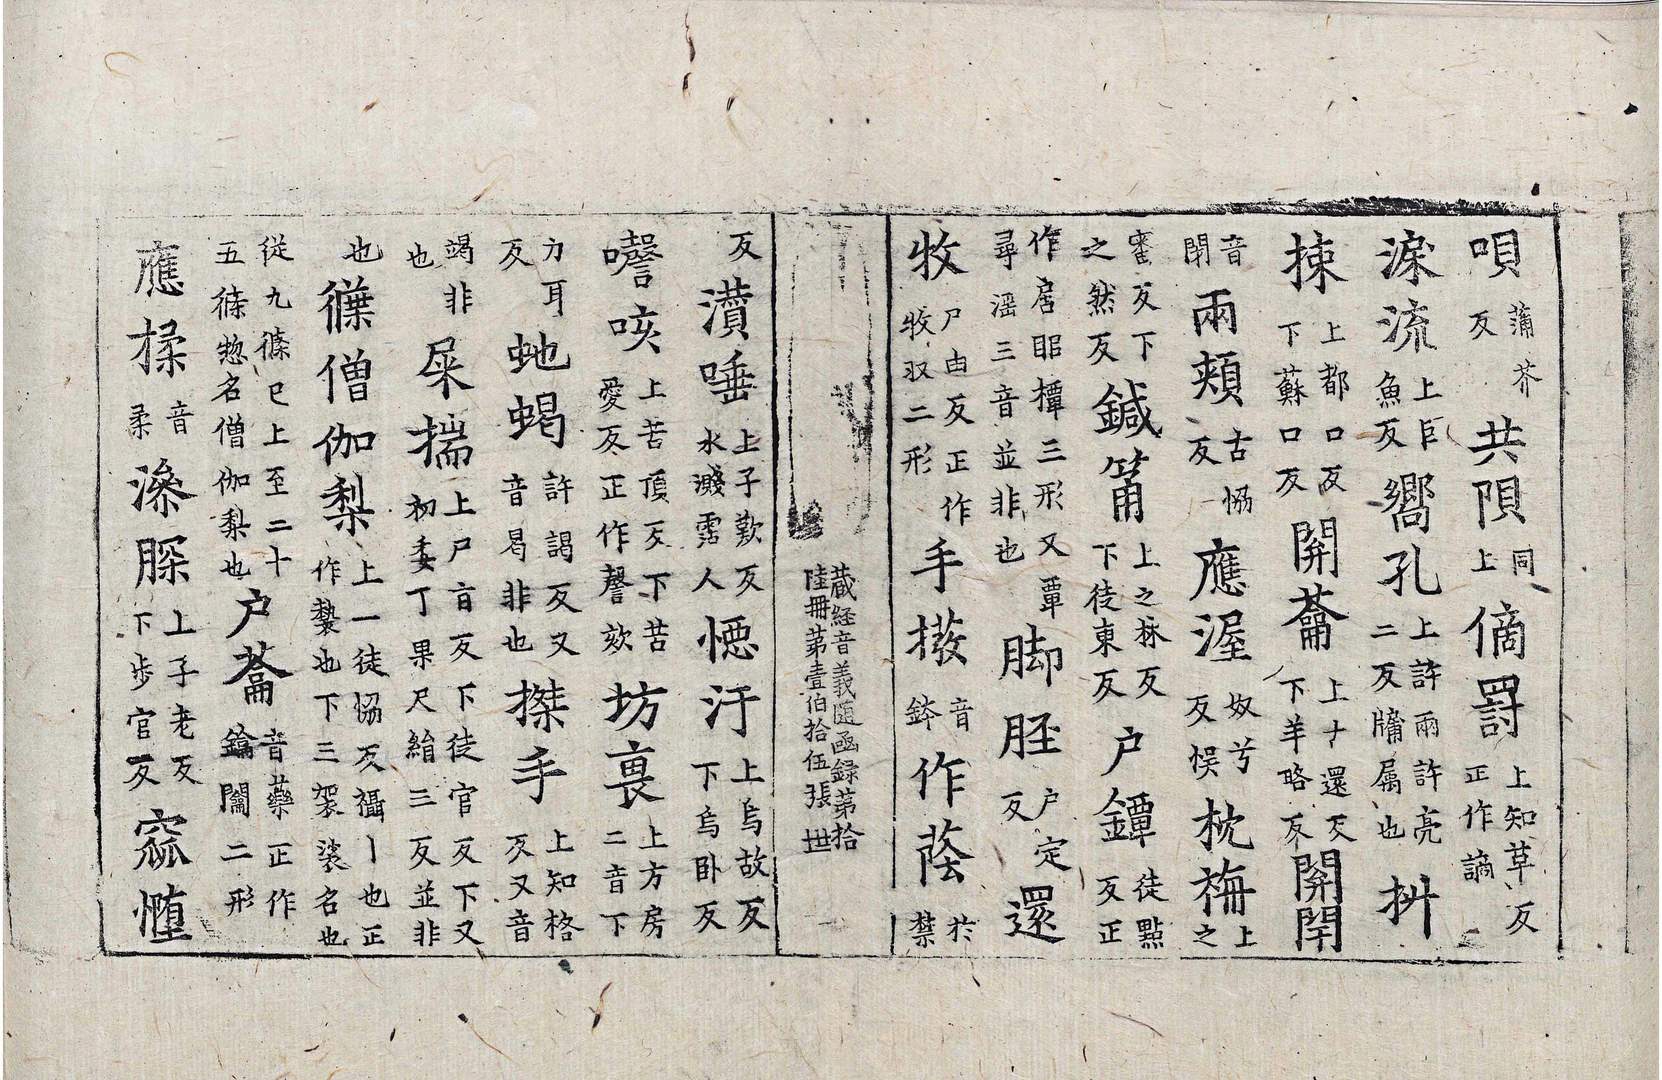 唄蒲芥反共隕同上傿罰上知草反正作謫
淭流上巨魚反嚮孔上許兩許亮二反牗属也抖
捒上都口反下蘇口反開蘥上十還反下羊略反開閇
音閇兩頰古協反應渥奴兮反悮枕栴上之
審反下之然反鍼筩上之林反下徒東反户鐔徒點反正
作橝三形又覃尋滛三音並非也脚胵户定反還
牧尸由反正作收収二形手撥音鉢作蔭於禁
蔵経音義随函録第拾陸冊第壹伯拾伍張 丗
反灒唾上子歎反水濺霑人汙上烏故反下烏卧反
謦咳上苦頂反下苦愛反正作謦欬坊裏上方房二音下
力耳反虵蝎許謁反又音曷非也搩手上知格反又音
竭非也屎揣上尸旨反下徒官反下又初委丁果尺絹三反並非
也僧伽梨上一徒協反襵丨也正作也下三袈裟名也
從九條已上至二十五條惣名僧伽梨也户蘥音藥正作鑰二形
應揉音柔澡上子老反下步官反窊